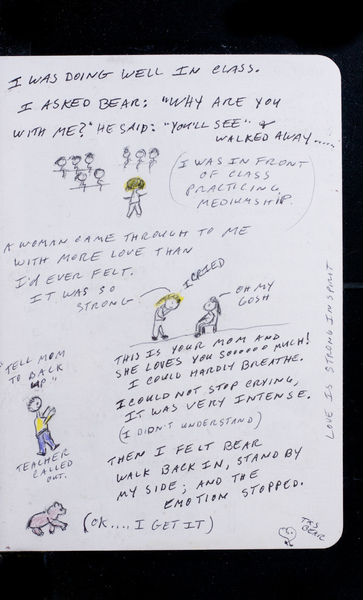 I WAS DOING WELL IN CLASS.
I ASKED BEAR: "WHY ARE YOU
WITH ME?" HE SAID: "YOU'LL SEE" &
WALKED AWAY.....
(I WAS IN FRONT
OF CLASS
PRACTICING
MEDIUMSHIP.)
A WOMAN CAME THROUGH TO ME
WITH MORE LOVE THAN
I'D EVER FELT.
IT WAS SO
STRONG
I CRIED
OH MY
GOSH
THIS IS YOUR MOM AND
SHE LOVES YOU SOOOOOO MUCH!
I COULD HARDLY BREATHE.
I COULD NOT STOP CRYING,
IT WAS VERY INTENSE.
(I DIDN'T UNDERSTAND)
"TELL MOM
TO BACK
UP"
TEACHER
CALLED
OUT.
THEN I FELT BEAR
WALK BACK IN, STAND BY
MY SIDE; AND THE
EMOTION STOPPED.
(OK.... I GET IT)
LOVE IS STRONG IN SPIRIT
BEAR